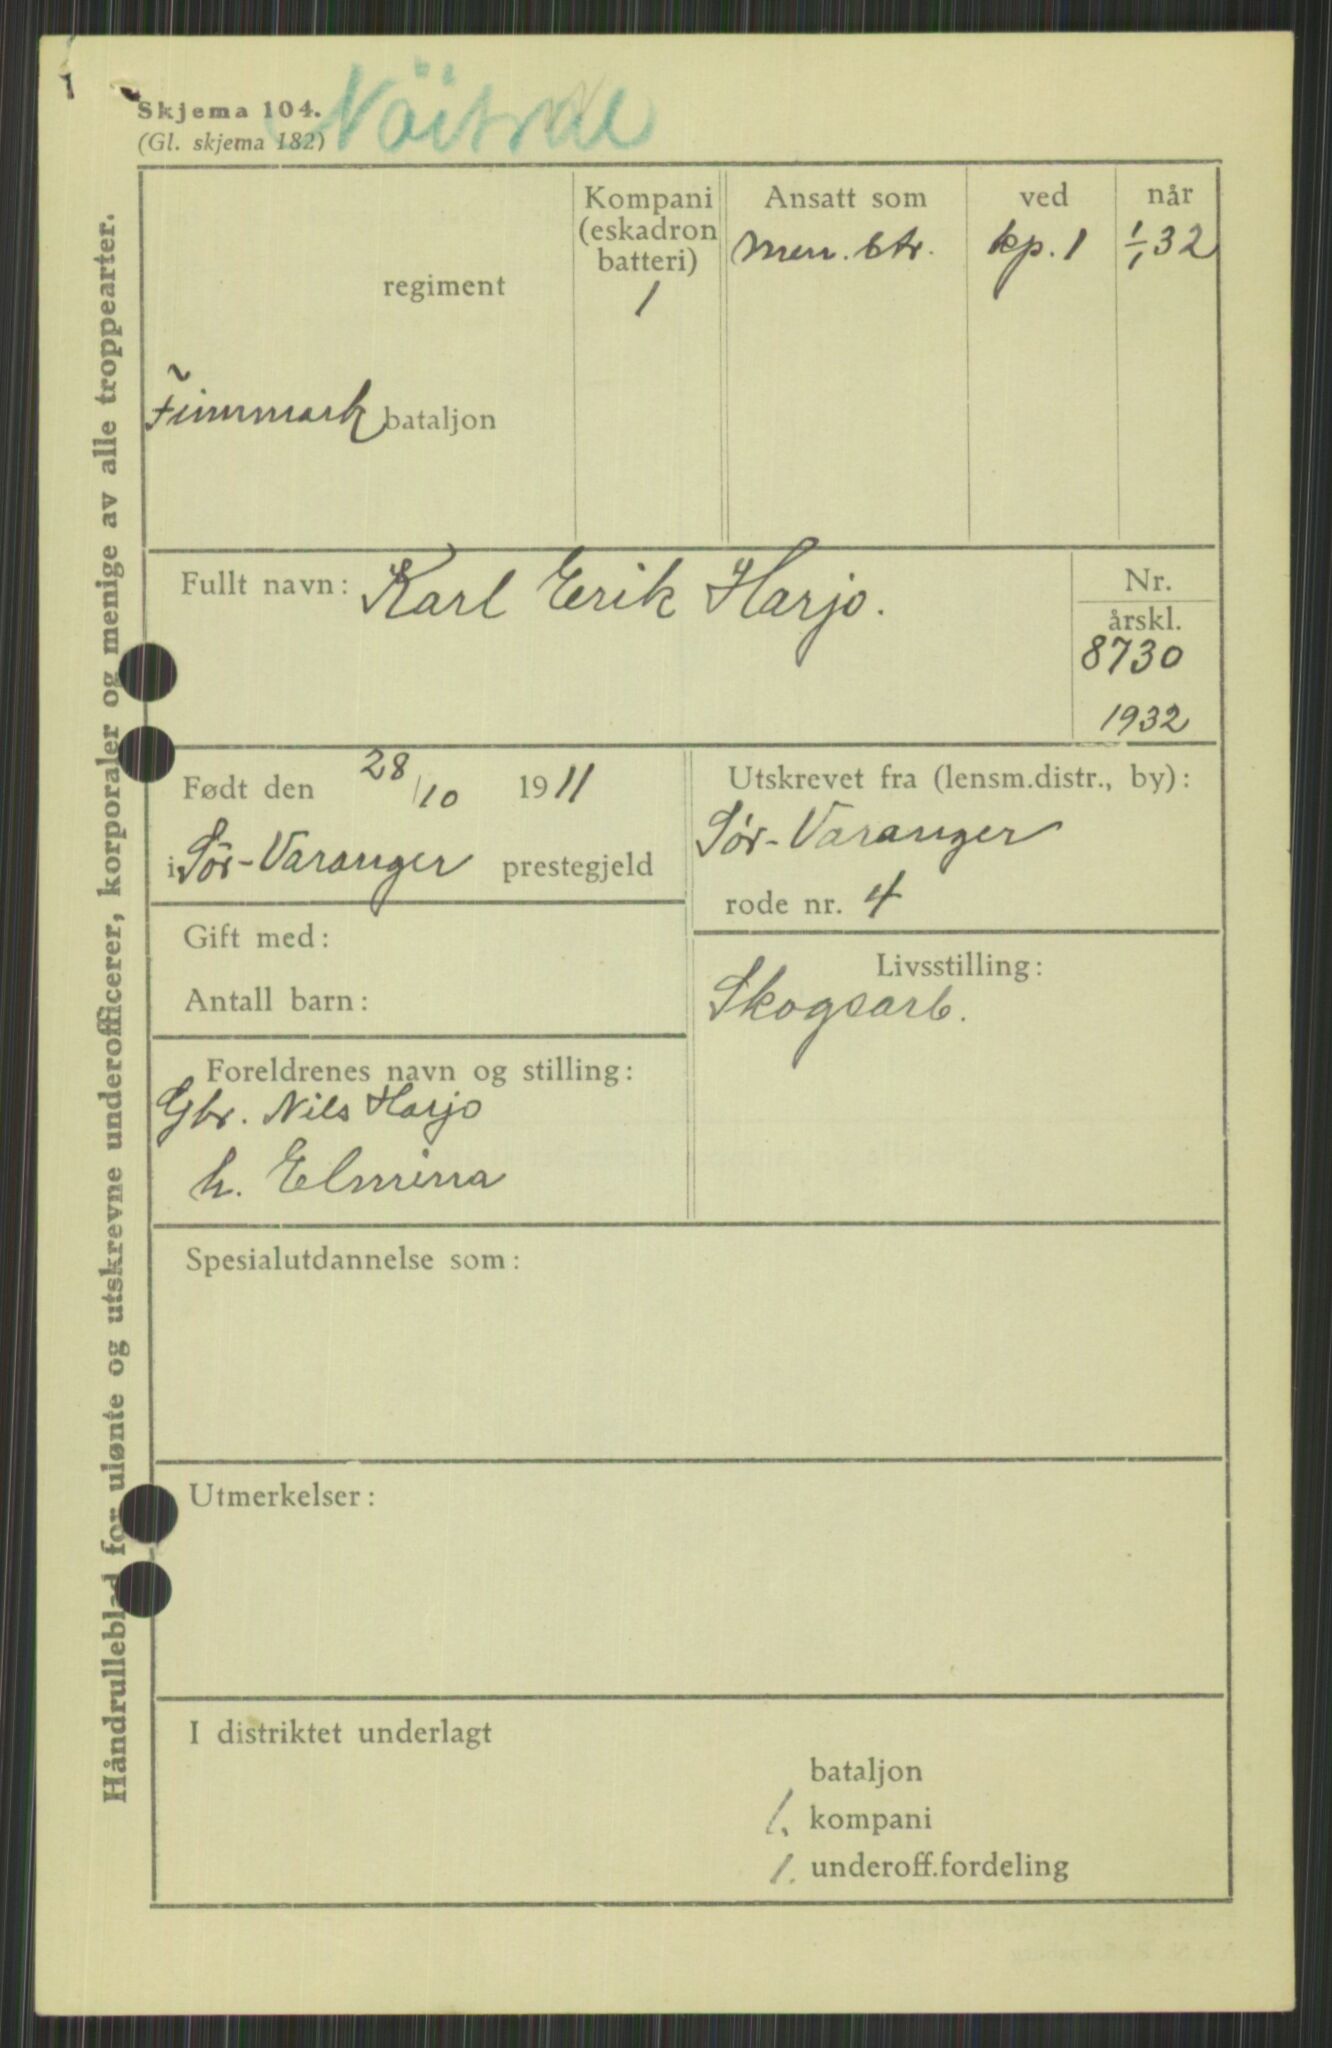 Skjema 104.
(Gl. skjema 182)
Håndrulleblad for ulønte og utskrevne underofficerer, korporaler og menige av alle troppearter.
regiment
Finnmark bataljon
Kompani
(eskadron
batteri)
1
Ansatt som
men. str.
ved
kp. 1
når
1/1 32
Fullt navn: Karl Erik Harjo.
Nr.
årskl.
8730
1932
Født den 28/10 1911
i Sør-Varanger prestegjeld
Utskrevet fra (lensm.distr., by):
Sør-Varanger
rode nr. 4
Gift med:
Antall barn:
Livsstilling:
Skogsarb.
Foreldrenes navn og stilling:
Gbr. Nils Harjo
h. Elmina
Spesialutdannelse som:
Utmerkelser:
I distriktet underlagt
bataljon
1. kompani
1. underoff.fordeling